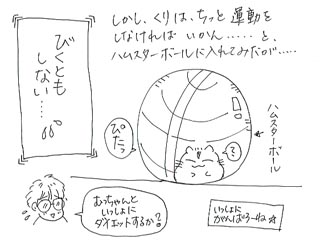 しかし、くりは、ちっと運動を
しなければ いかん……と、
ハムスターボールに入れてみたが……
びくとも
しない……
ぴたっ
ハムスターボール
おっちゃんと
いっしょに
ダイエットするか?
いっしょに
がんばろーね☆